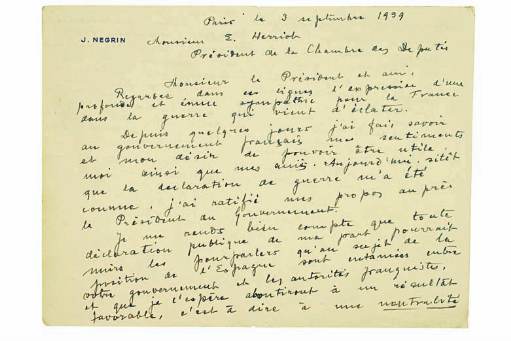 Paris le 3 septembre 1939
J. NEGRIN
Monsieur E. Herriot
Président de la Chambre des Députés
Monsieur le Président et ami,
Regardez dans ces lignes l'expression d'une
profonde et émue sympathie pour la France
dans la guerre qui vient d'éclater.
Depuis quelques jours j'ai fait savoir
au gouvernement français mes sentiments
et mon désir de pouvoir être utile
moi ainsi que mes amis. Aujourd'hui, sitôt
que la déclaration de guerre m'a été
connue, j'ai ratifié mes propos auprès
le Président du Gouvernement.
Je me rends bien compte que toute
déclaration publique de ma part pourrait
nuire les pourparlers qu'au sujet de la
position de l'Espagne sont entamées entre
votre gouvernement et les autorités franquistes,
et que je l'espère aboutiront à un résultat
favorable, c'est à dire à une neutralité